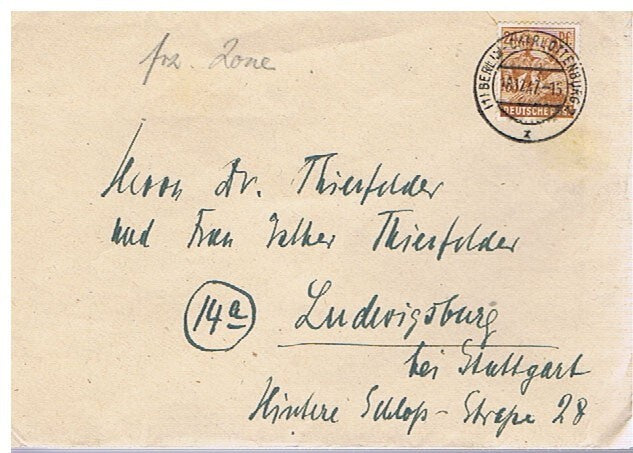 frz. Zone
(1) BERLIN-CHARLOTTENBURG
DEUTSCHE
Herrn Dr. Thierfelder
und Frau Esther Thierfelder
14a
Ludwigsburg
bei Stuttgart
Hintere Schloß-Straße 28